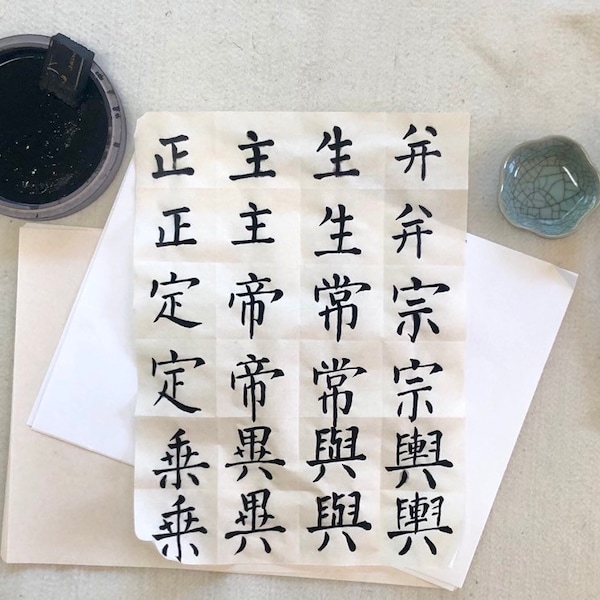 正 主 生 并
正 主 生 并
定 帝 常 宗
定 帝 常 宗
乗 異 與 輿
乗 異 與 輿